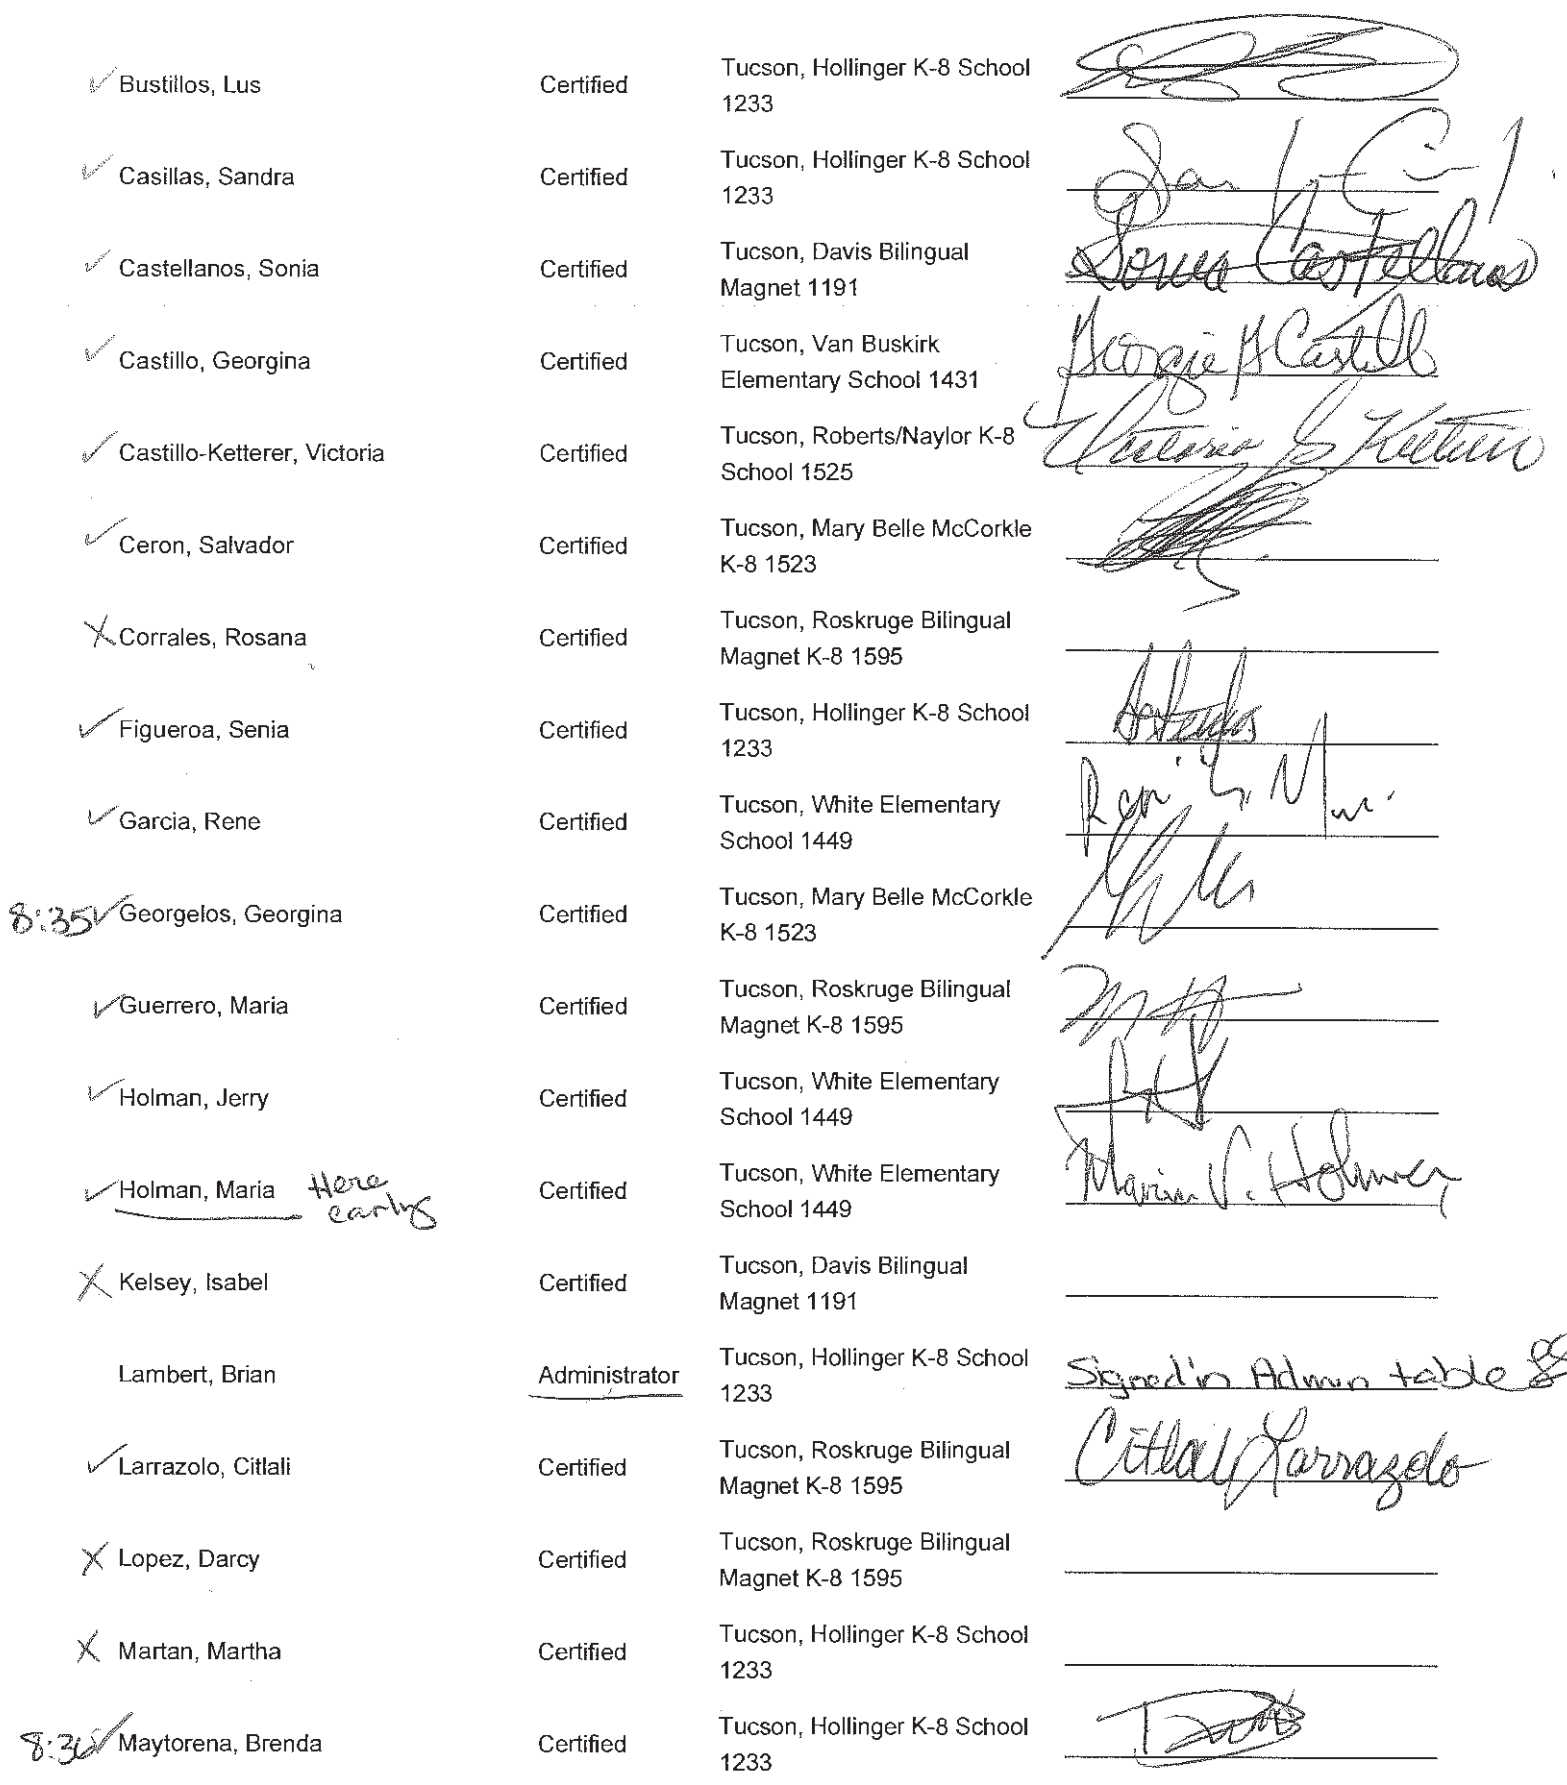 ✓ Bustillos, Lus Certified Tucson, Hollinger K-8 School
1233
✓ Casillas, Sandra Certified Tucson, Hollinger K-8 School
1233
✓ Castellanos, Sonia Certified Tucson, Davis Bilingual Sonia Castellanos
Magnet 1191
✓ Castillo, Georgina Certified Tucson, Van Buskirk Georgie G Castillo
Elementary School 1431
✓ Castillo-Ketterer, Victoria Certified Tucson, Roberts/Naylor K-8 Victoria
School 1525
✓ Ceron, Salvador Certified Tucson, Mary Belle McCorkle
K-8 1523
X Corrales, Rosana Certified Tucson, Roskruge Bilingual
Magnet K-8 1595
✓ Figueroa, Senia Certified Tucson, Hollinger K-8 School
1233
✓ Garcia, Rene Certified Tucson, White Elementary
School 1449
8:35 ✓ Georgelos, Georgina Certified Tucson, Mary Belle McCorkle
K-8 1523
✓ Guerrero, Maria Certified Tucson, Roskruge Bilingual
Magnet K-8 1595
✓ Holman, Jerry Certified Tucson, White Elementary
School 1449
✓ Holman, Maria Here early Certified Tucson, White Elementary Maria V. Holman
School 1449
X Kelsey, Isabel Certified Tucson, Davis Bilingual
Magnet 1191
Lambert, Brian Administrator Tucson, Hollinger K-8 School Signed in Admin table
1233
✓ Larrazolo, Citlali Certified Tucson, Roskruge Bilingual Citlali Larrazolo
Magnet K-8 1595
X Lopez, Darcy Certified Tucson, Roskruge Bilingual
Magnet K-8 1595
X Martan, Martha Certified Tucson, Hollinger K-8 School
1233
8:36 ✓ Maytorena, Brenda Certified Tucson, Hollinger K-8 School
1233